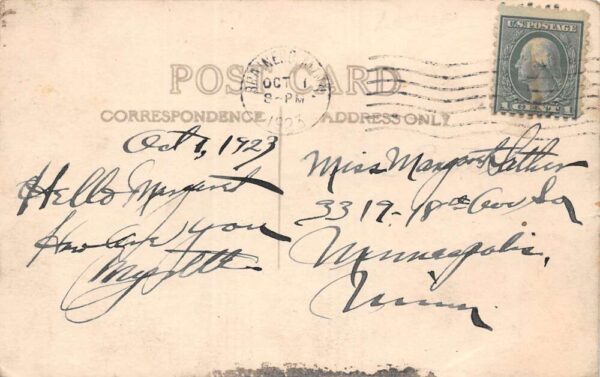 POST CARD
CORRESPONDENCE
ADDRESS ONLY
U.S. POSTAGE
1 CENT 1
BRAINERD, MINN.
OCT 1
8-PM
1923
Oct 1, 1923
Hello Margaret
How are you
Myrtle
Miss Margaret
3319-18th Ave So
Minneapolis,
Minn.